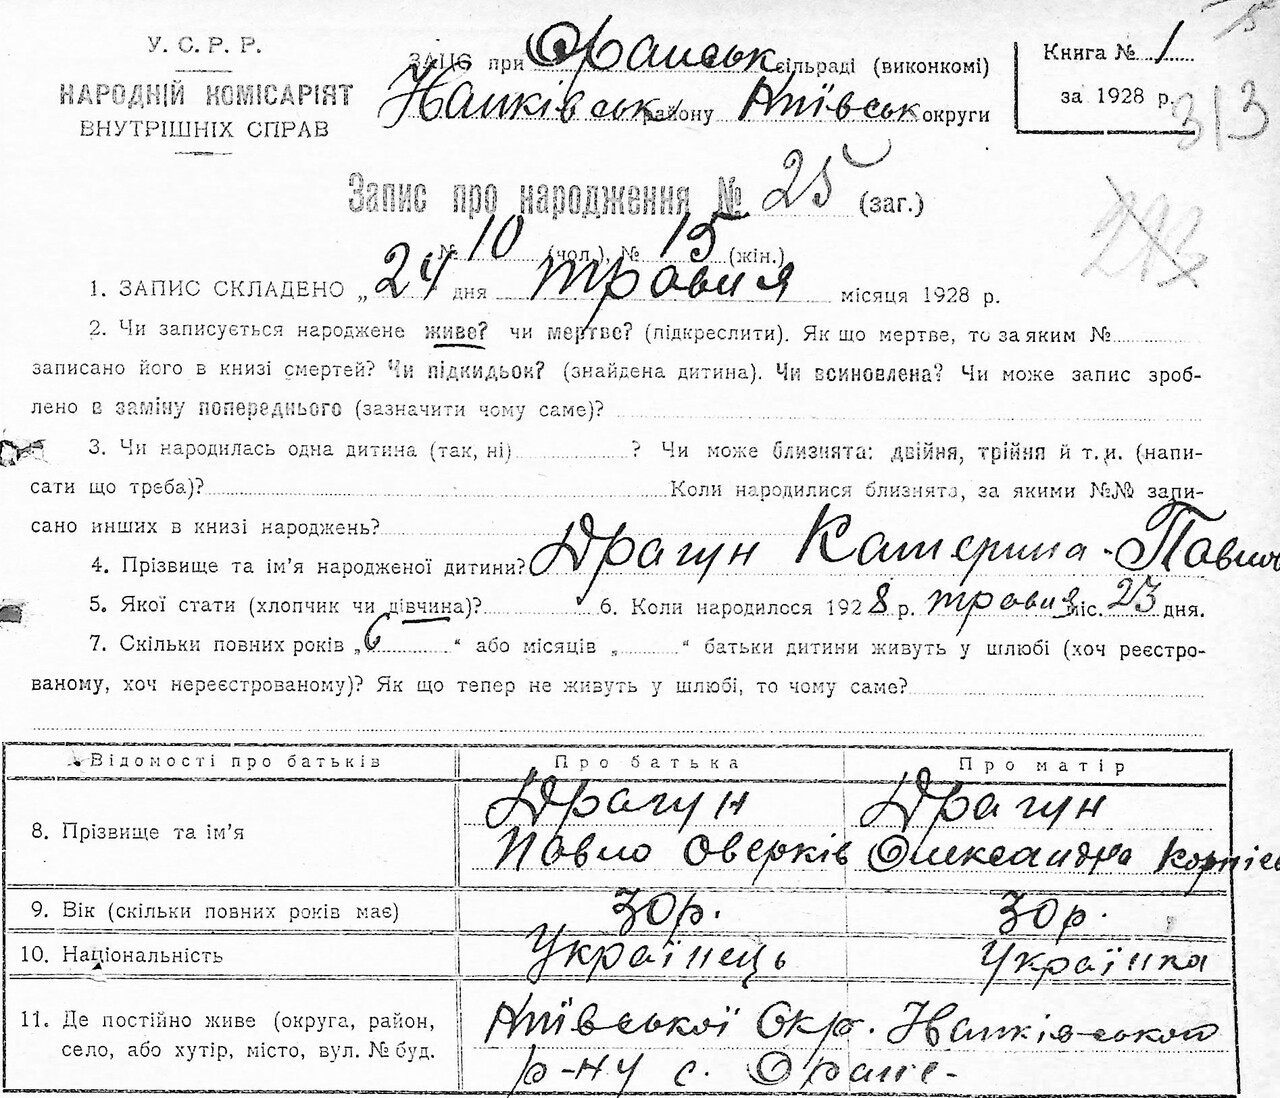 У. С. Р. Р.
НАРОДНІЙ КОМІСАРІЯТ
ВНУТРІШНІХ СПРАВ
ЗАЦС при Оранськ сільраді (виконкомі)
району Київськ округи
Книга № 1
за 1928 р.
313
Запис про народження № 25 (заг.)
№ 10 (чол.), № 15 (жін.)
1. ЗАПИС СКЛАДЕНО „ 24 дня травня місяця 1928 р.
2. Чи записується народжене живе? чи мертве? (підкреслити). Як що мертве, то за яким №
записано його в книзі смертей? Чи підкидьок? (знайдена дитина). Чи всиновлена? Чи може запис зроб-
лено в заміну попереднього (зазначити чому саме)?
3. Чи народилась одна дитина (так, ні) ? Чи може близнята: двійня, трійня й т. и. (напи-
сати що треба)? Коли народилися близнята, за якими №№ запи-
сано инших в книзі народжень?
4. Прізвище та ім'я народженої дитини? Драгун Катерина - Павлов
5. Якої стати (хлопчик чи дівчина)? 6. Коли народилося 1928 р. травня міс. 23 дня.
7. Скільки повних років „ 6 “ або місяців „ “ батьки дитини живуть у шлюбі (хоч реєстро-
ваному, хоч нереєстрованому)? Як що тепер не живуть у шлюбі, то чому саме?
Відомості про батьків Про батька Про матір
8. Прізвище та ім'я Драгун Драгун
Павло Оверків Олександра Корнієв
9. Вік (скільки повних років має) 30 р. 30 р.
10. Національність Українець Українка
11. Де постійно живе (округа, район, Київської Окр.
село, або хутір, місто, вул. № буд. р-ну с. Оране-